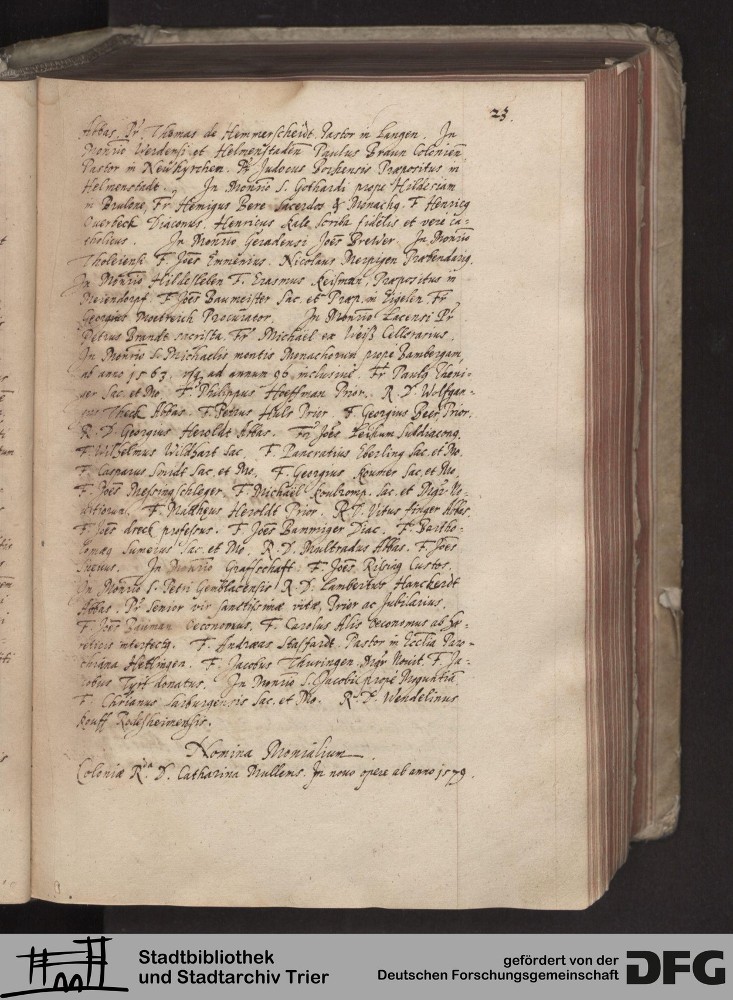 23.
Abbas. Pr. Thomas de Hemmerscheidt Pastor in Langen. In
Monrio Werdensi et Helmenstaden Paulus Braun Colonien.
Pastor in Neükyrchen. Pr Judocus Bochensis Præpositus in
Helmenstadt. In Monrio S. Gothardi prope Hildesiam
in Brulone, Fr. Hemigus Bere Sacerdos & Monachg. F. Henricg
Ouerbeck Diaconus. Henricus Kale, scriba fidelis et vere ca=
tholicus. In Monrio Geradensi Joēs Brewer. In Monrio
Tholeiensi F. Joēs Emmenius. Nicolaus Merpigen Præbendarig.
In Monrio Hildesleben F. Erasmus Keisman, Præpositus in
Meiendorpf. F. Joēs Baumeister Sac. et Præp. in Eigelen Fr.
Georgius Moetreich Procurator. In Monrio Lacensi Pr
Petrus Brandt sacrista. Fr. Michael ex Weiß Cellerarius.
In Monrio S. Michaelis montis Monachorum prope Bambergam,
ab anno 1563. usq. ad annum 96 inclusiué. Fr. Paulg Theni=
ger Sac. et Mo. F. Philippus Hoeffman Prior. R. D. Wolfgan=
gus Theck Abbas. F. Petrus Huls Prior. F. Georgius Beer Prior.
R. D. Georgius Heroldt Abbas. Fr. Joēs Subdiacong.
F. Wilhelmus Wildhart Sac. F. Pancratius Eberling Sac. et Mo.
F. Casparus Smidt Sac. et Mo. F. Georgius Sac. et Mo.
F. Joēs Messingschleger. F. Michael Sac. et Mgr No=
uitiorum. F. Mattheus Heroldt Prior. R. D. Vitus Finger Abbas.
F. Joēs dreck professus. F. Joēs Diac. F. Bartho=
lomæg Sumerus Sac. et Mo. R. D. Multradus Abbas. F. Joēs
Sueuus. In Monrio Graffschafft F. Joēs Rising Custos.
In Monrio S. Petri Gemblacensis R. D. Lambertus Hanckerdt
Abbas. Pr Senior vir sanctissimæ vitæ, Prior ac Jubilarius.
F. Joēs Bauman Oeconomus. F. Carolus Alis Oeconomus ab hæ=
reticis interfectg. F. Andræas Stassardt. Pastor in Ecclīa Paro=
chiana Hettingen. F. Jacobus Thuringen Mgr Nouit. F. Ja=
cobus Tyrt donatus. In Monrio S. Jacobi prope Moguntiā
F. Chrianus Sarburgensis Sac. et Mo. R. D. Wendelinus
Kouff Rodesheimensis.
Nomina Monialium.
Coloniæ Rda D. Catharina Mullems. In nouo opere ab anno 1579.
Stadtbibliothek
und Stadtarchiv Trier
gefördert von der
Deutschen Forschungsgemeinschaft
DFG